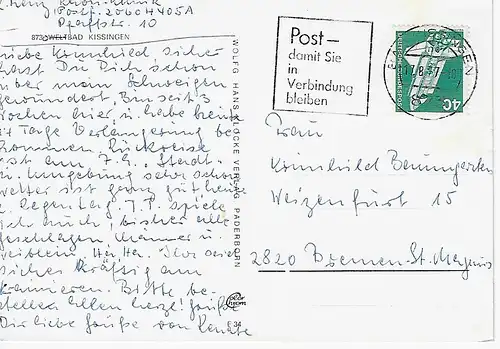 Postf. 20604405A
Pfaffstr. 10
8730 WELTBAD KISSINGEN
liebe Krimhild sicher
hast Du Dich schon
über mein Schweigen
gewundert. Bin seit 3
Wochen hier u. habe heute
Tage Verlängerung be
kommen. Rückreise
ist am 7.9. Stadt
u. Umgebung sehr schön
Wetter ist ganz gut heute
Regentag. T.T. spiele
ich auch, bisher alle
geschlagen, Männer u.
weiblein Ha, Ha.
sicher kräftig am
trainieren. Bitte be-
stelle allen herzl. Grüße
Dir liebe Grüße von Renate
WOLFG. HANS KLOCKE VERLAG PADERBORN
Post—
damit Sie
in
Verbindung
bleiben
DEUTSCHE BUNDESPOST
40
Frau
Krimhild Baumgarten
Weizenfurt 15
2820 Bremen-St. Magnus